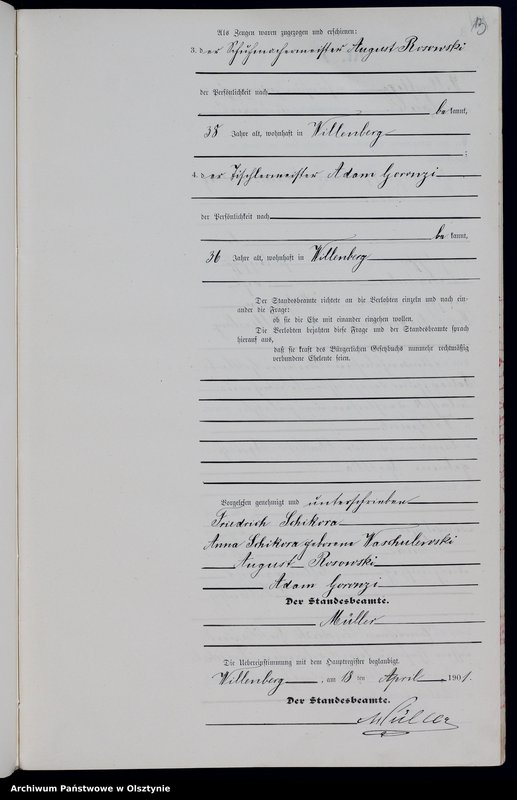 13
Als Zeugen waren zugezogen und erschienen:
3. der Schuhmachermeister August Rosowski
der Persönlichkeit nach
be kannt,
38 Jahre alt, wohnhaft in Willenberg
;
4. der Tischlermeister Adam Goronzi
der Persönlichkeit nach
be kannt,
36 Jahre alt, wohnhaft in Willenberg
Der Standesbeamte richtete an die Verlobten einzeln und nach ein-
ander die Frage:
ob sie die Ehe mit einander eingehen wollen.
Die Verlobten bejahten diese Frage und der Standesbeamte sprach
hierauf aus,
daß sie kraft des Bürgerlichen Gesetzbuchs nunmehr rechtmäßig
verbundene Eheleute seien.
Vorgelesen genehmigt und unterschrieben
Friedrich Schikora
Anna Schikora geborene Waschulewski
August Rosowski
Adam Goronzi
Der Standesbeamte.
Müller
Die Uebereinstimmung mit dem Hauptregister beglaubigt.
Willenberg, am 18 ten April 1901.
Der Standesbeamte.
Müller
Archiwum Państwowe w Olsztynie